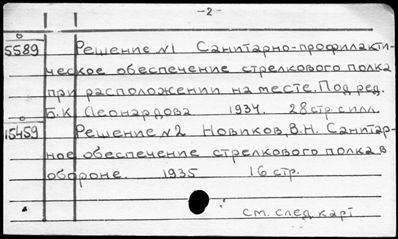 -2-
5589 Решение №1 Санитарно-профилакти-
ческое обеспечение стрелкового полка
при расположении на месте. Под ред.
Б.К. Леонардова 1934. 28 стр. с илл.
15459 Решение №2 Новиков, В.Н. Санитар-
ное обеспечение стрелкового полка в
обороне. 1935 16 стр.
см. след карт